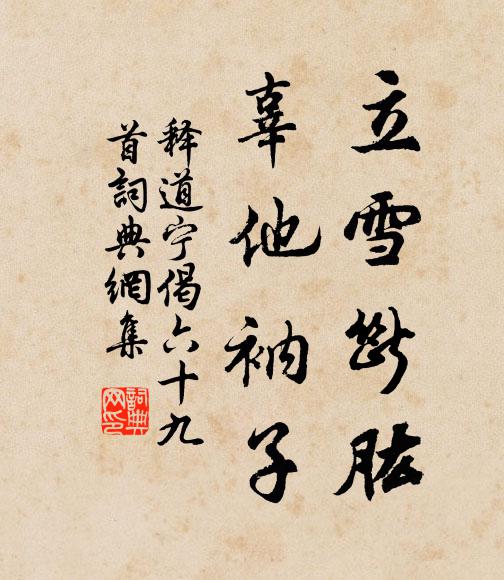 立雪斷肱
辜他衲子
释道宁偈六十九
首詞典網集
詞典网印